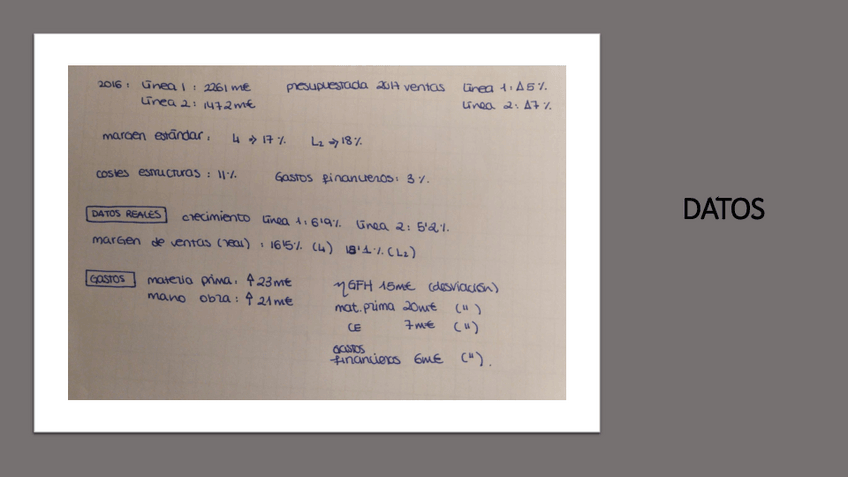 2016: Línea 1: 2261 m€ presupuestada 2017 ventas Línea 1: Δ5%
Línea 2: 1472 m€ Línea 2: Δ7%.
margen estándar: L1 => 17% L2 => 18%
costes estructuras: 11% Gastos financieros: 3%.
DATOS REALES crecimiento Línea 1: 6'9% Línea 2: 5'2%.
margen de ventas (real): 16'5% (L1) 18'1% (L2)
GASTOS materia prima: ↑23m€
mano obra: ↑21m€
ηGFH 15m€ (desviación)
mat. prima 20m€ (")
CE 7m€ (")
gastos
financieros 6m€ (").
DATOS